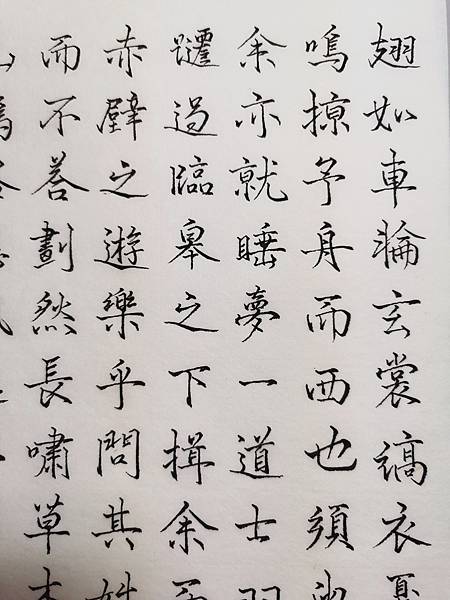 翅如車輪玄裳縞衣戛
鳴掠予舟而西也須臾
余亦就睡夢一道士羽
躚過臨皋之下揖余而
赤壁之遊樂乎問其姓
而不荅劃然長嘯草木